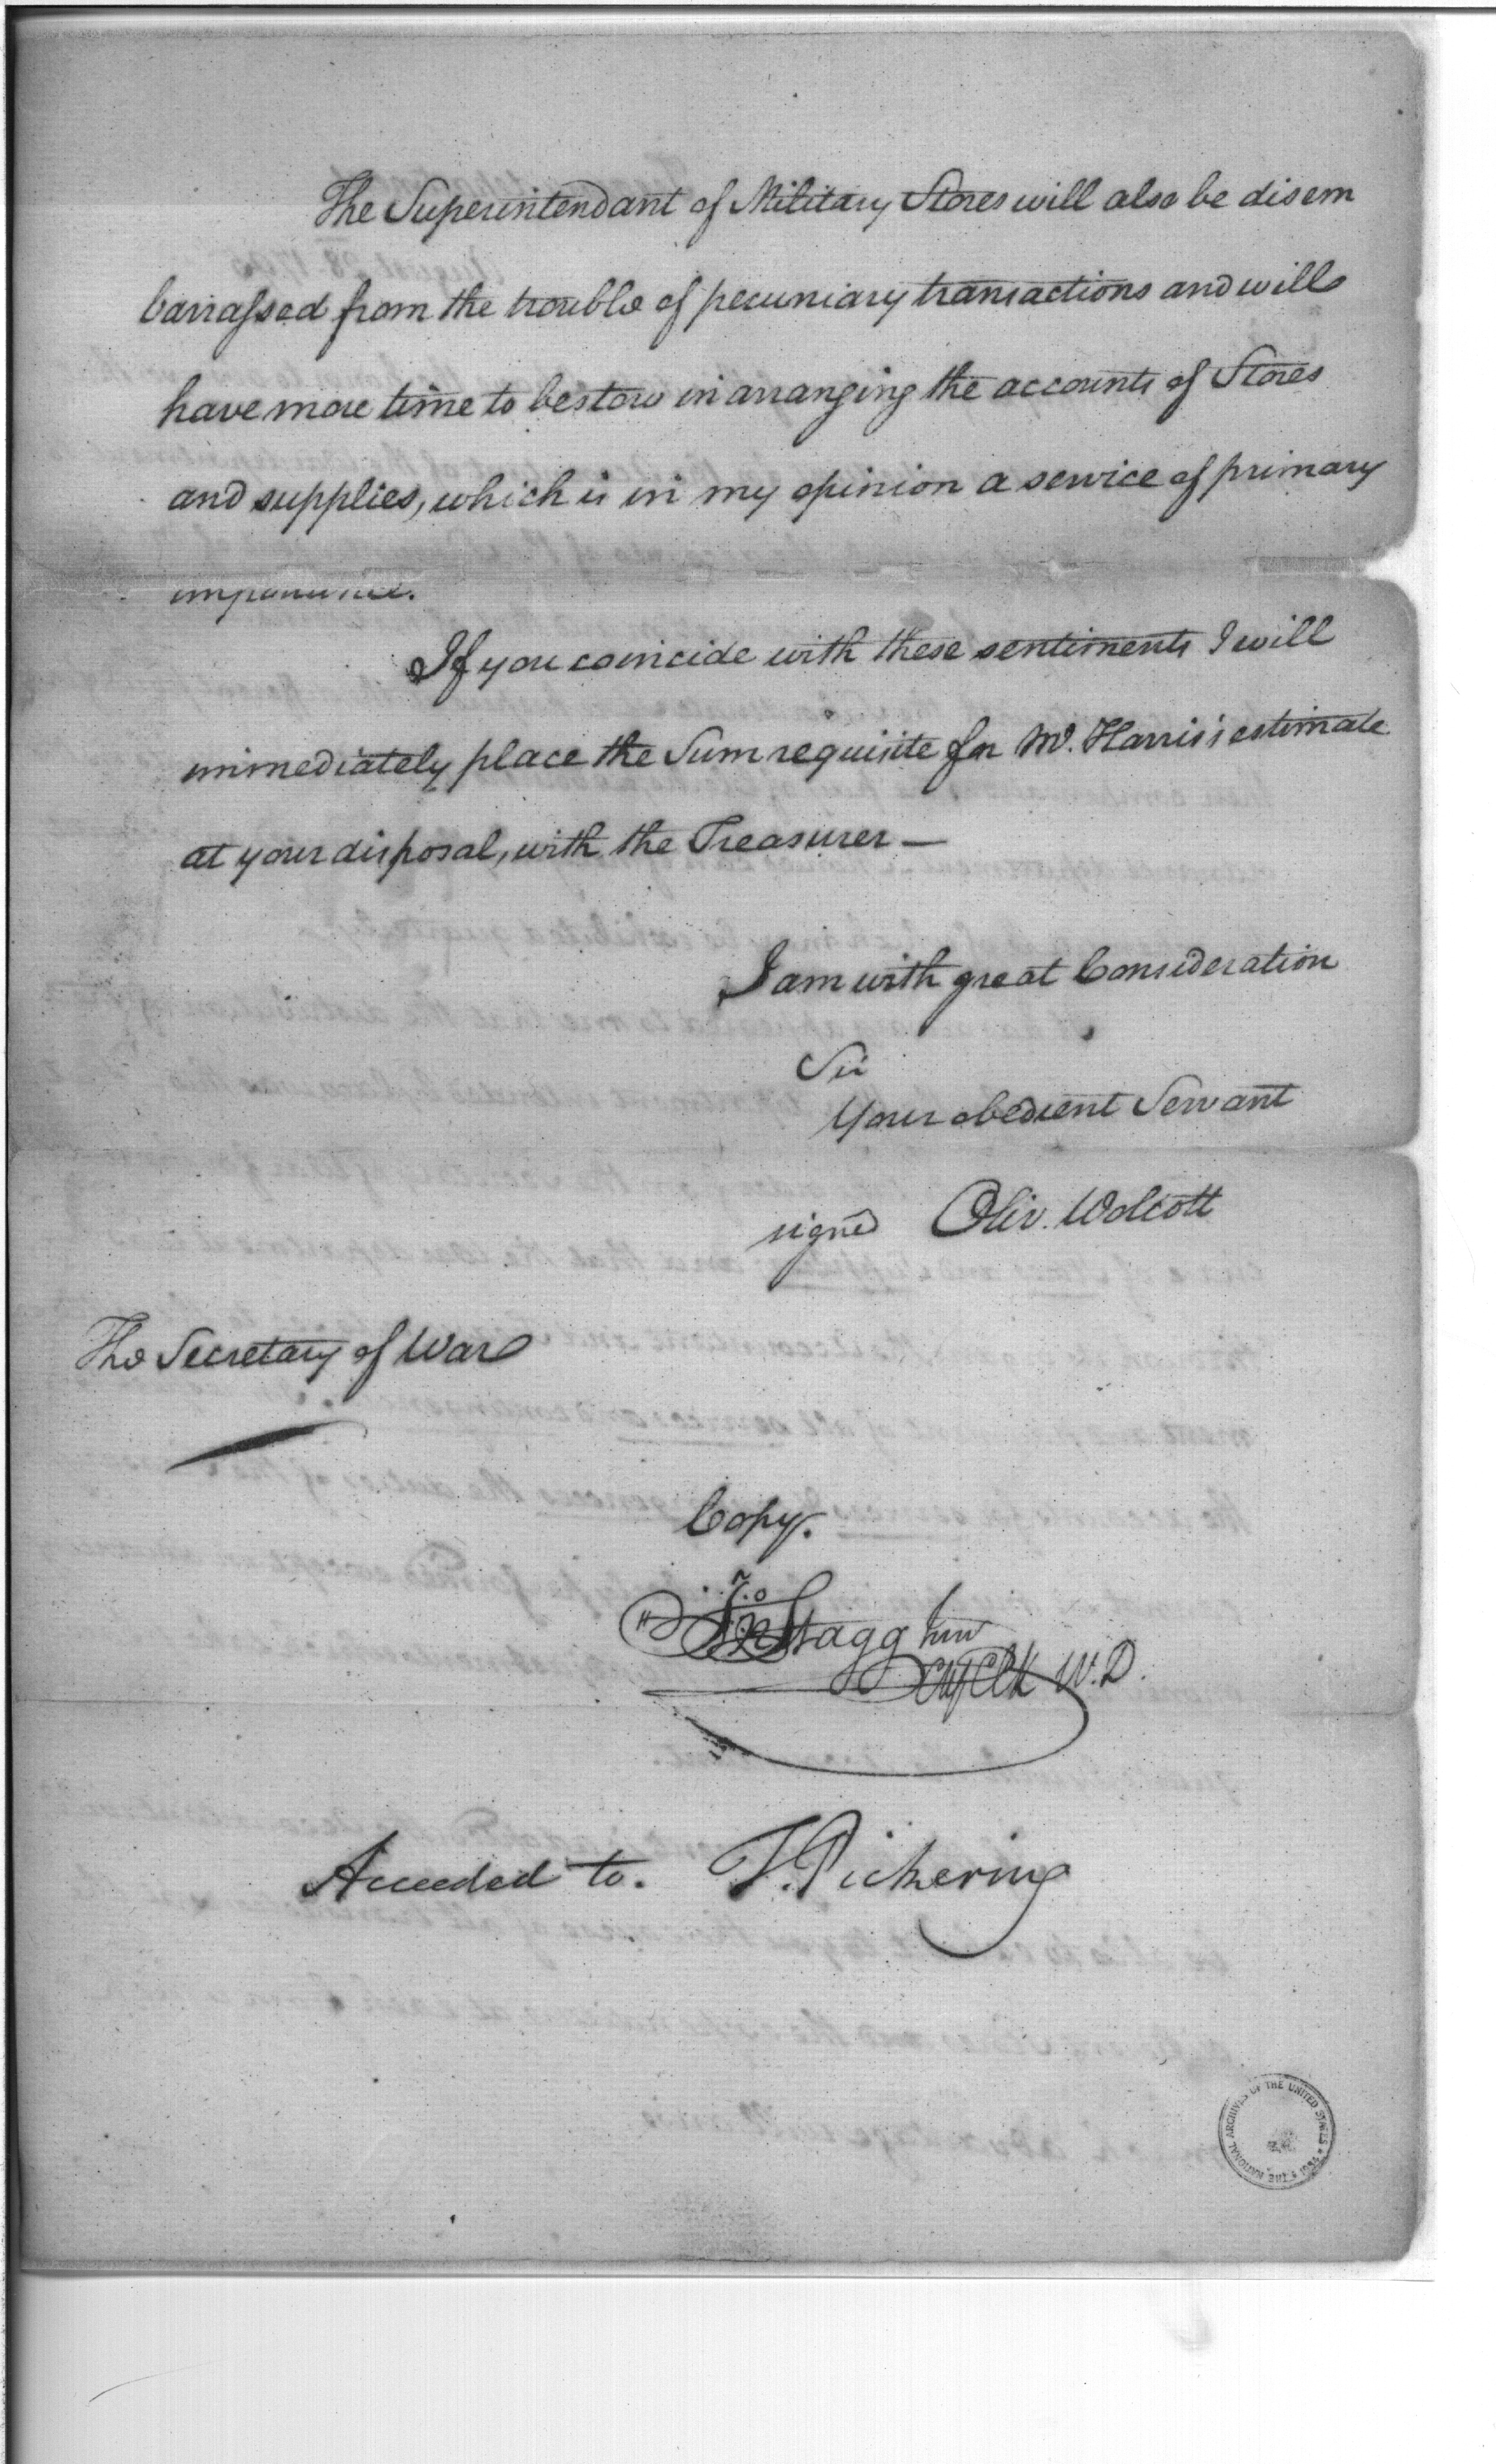 The Superintendant of Military Stores will also be disem
barrassed from the trouble of pecuniary transactions and will
have more time to bestow in arranging the accounts of Stores
and supplies, which is in my opinion a service of primary
importance.
If you coincide with these sentiments I will
immediately place the Sum requisite for Mr. Harris's estimate
at your disposal, with the Treasurer —
I am with great Consideration
Sir
Your obedient Servant
signed Oliv. Wolcott
The Secretary of War
Copy.
Jno Stagg Junr
Chf Clk W.D.
Acceded to. T. Pickering
THE NATIONAL ARCHIVES OF THE UNITED STATES * 1934 *